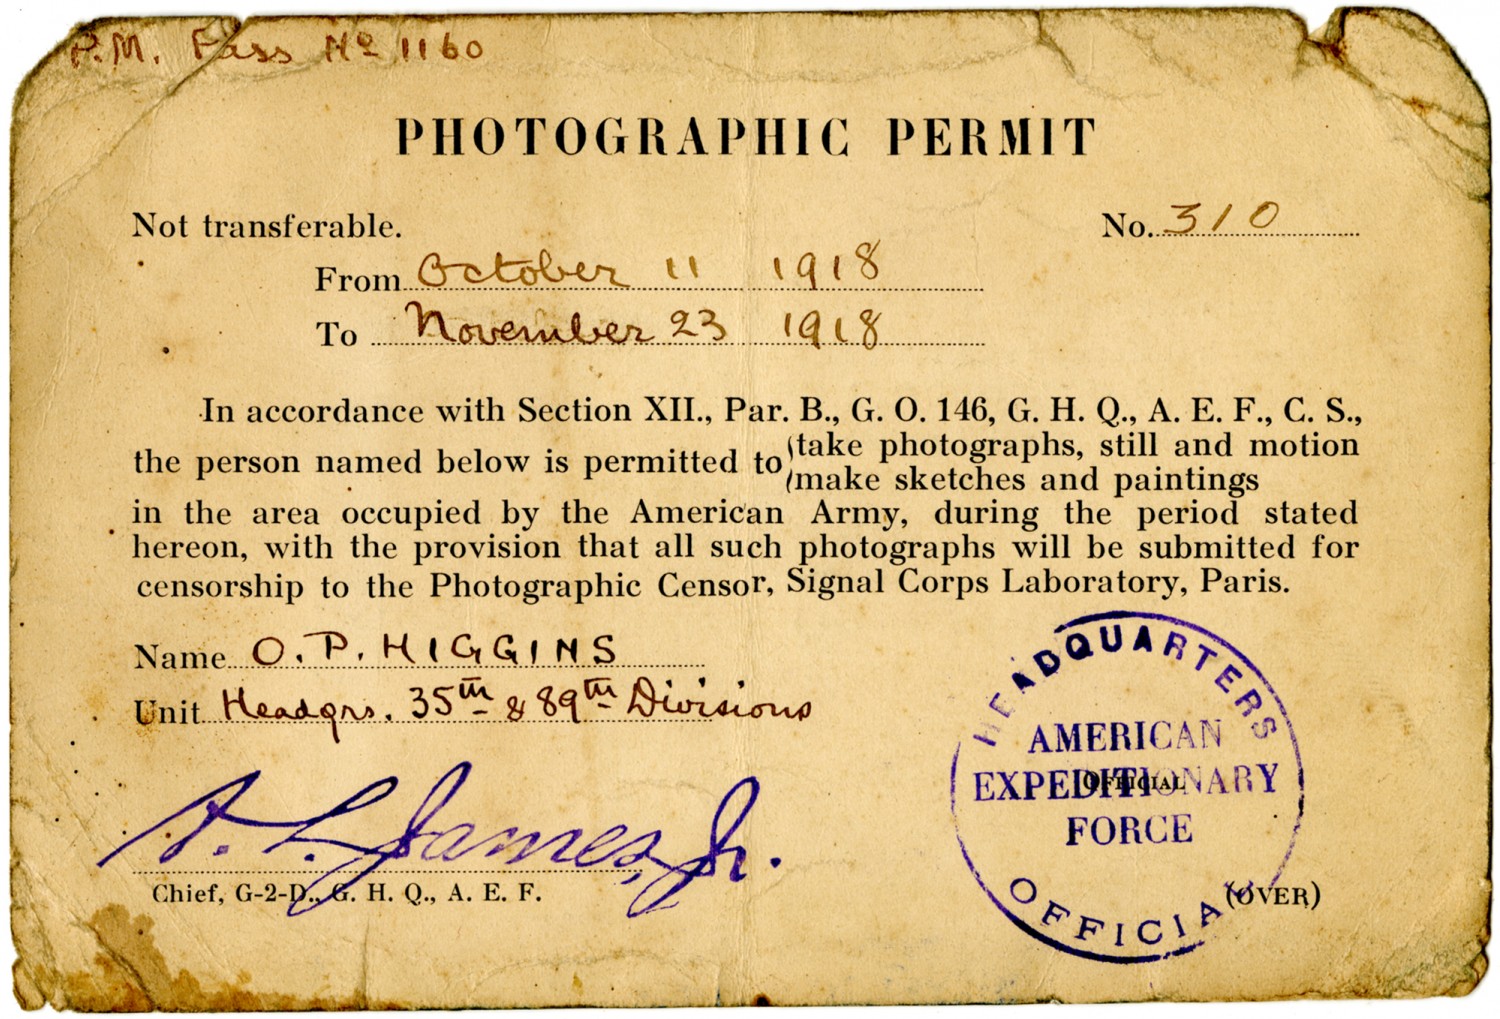 P.M. Pass No 1160
PHOTOGRAPHIC PERMIT
Not transferable.
No. 310
From October 11 1918
To November 23 1918
In accordance with Section XII., Par. B., G. O. 146, G. H. Q., A. E. F., C. S.,
the person named below is permitted to
take photographs, still and motion
make sketches and paintings
in the area occupied by the American Army, during the period stated
hereon, with the provision that all such photographs will be submitted for
censorship to the Photographic Censor, Signal Corps Laboratory, Paris.
Name O. P. HIGGINS
Unit Headqrs. 35th & 89th Divisions
A. L. James, Jr.
Chief, G-2-D., G. H. Q., A. E. F.
HEADQUARTERS
AMERICAN
EXPEDITIONARY
OFFICIAL
FORCE
OFFICIAL
(OVER)